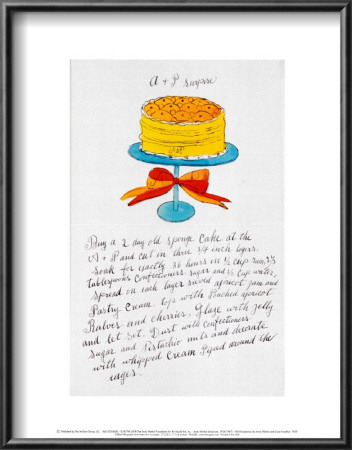 A + P surprise
Buy a 2 day old sponge cake at the
A + P and cut in three 3/4 inch layers.
Soak for exactly 36 hours in 1/2 cup rum, 2 2/3
tablespoons confectioners sugar and 1/2 cup water,
spread on each layer sieved apricot jam and
Pastry Cream. top with Poached apricot
Halves and cherries, Glaze with jelly
and let set. Dust with confectioners
sugar and Pistachio nuts and decorate
with whipped Cream Piped around the
edges.